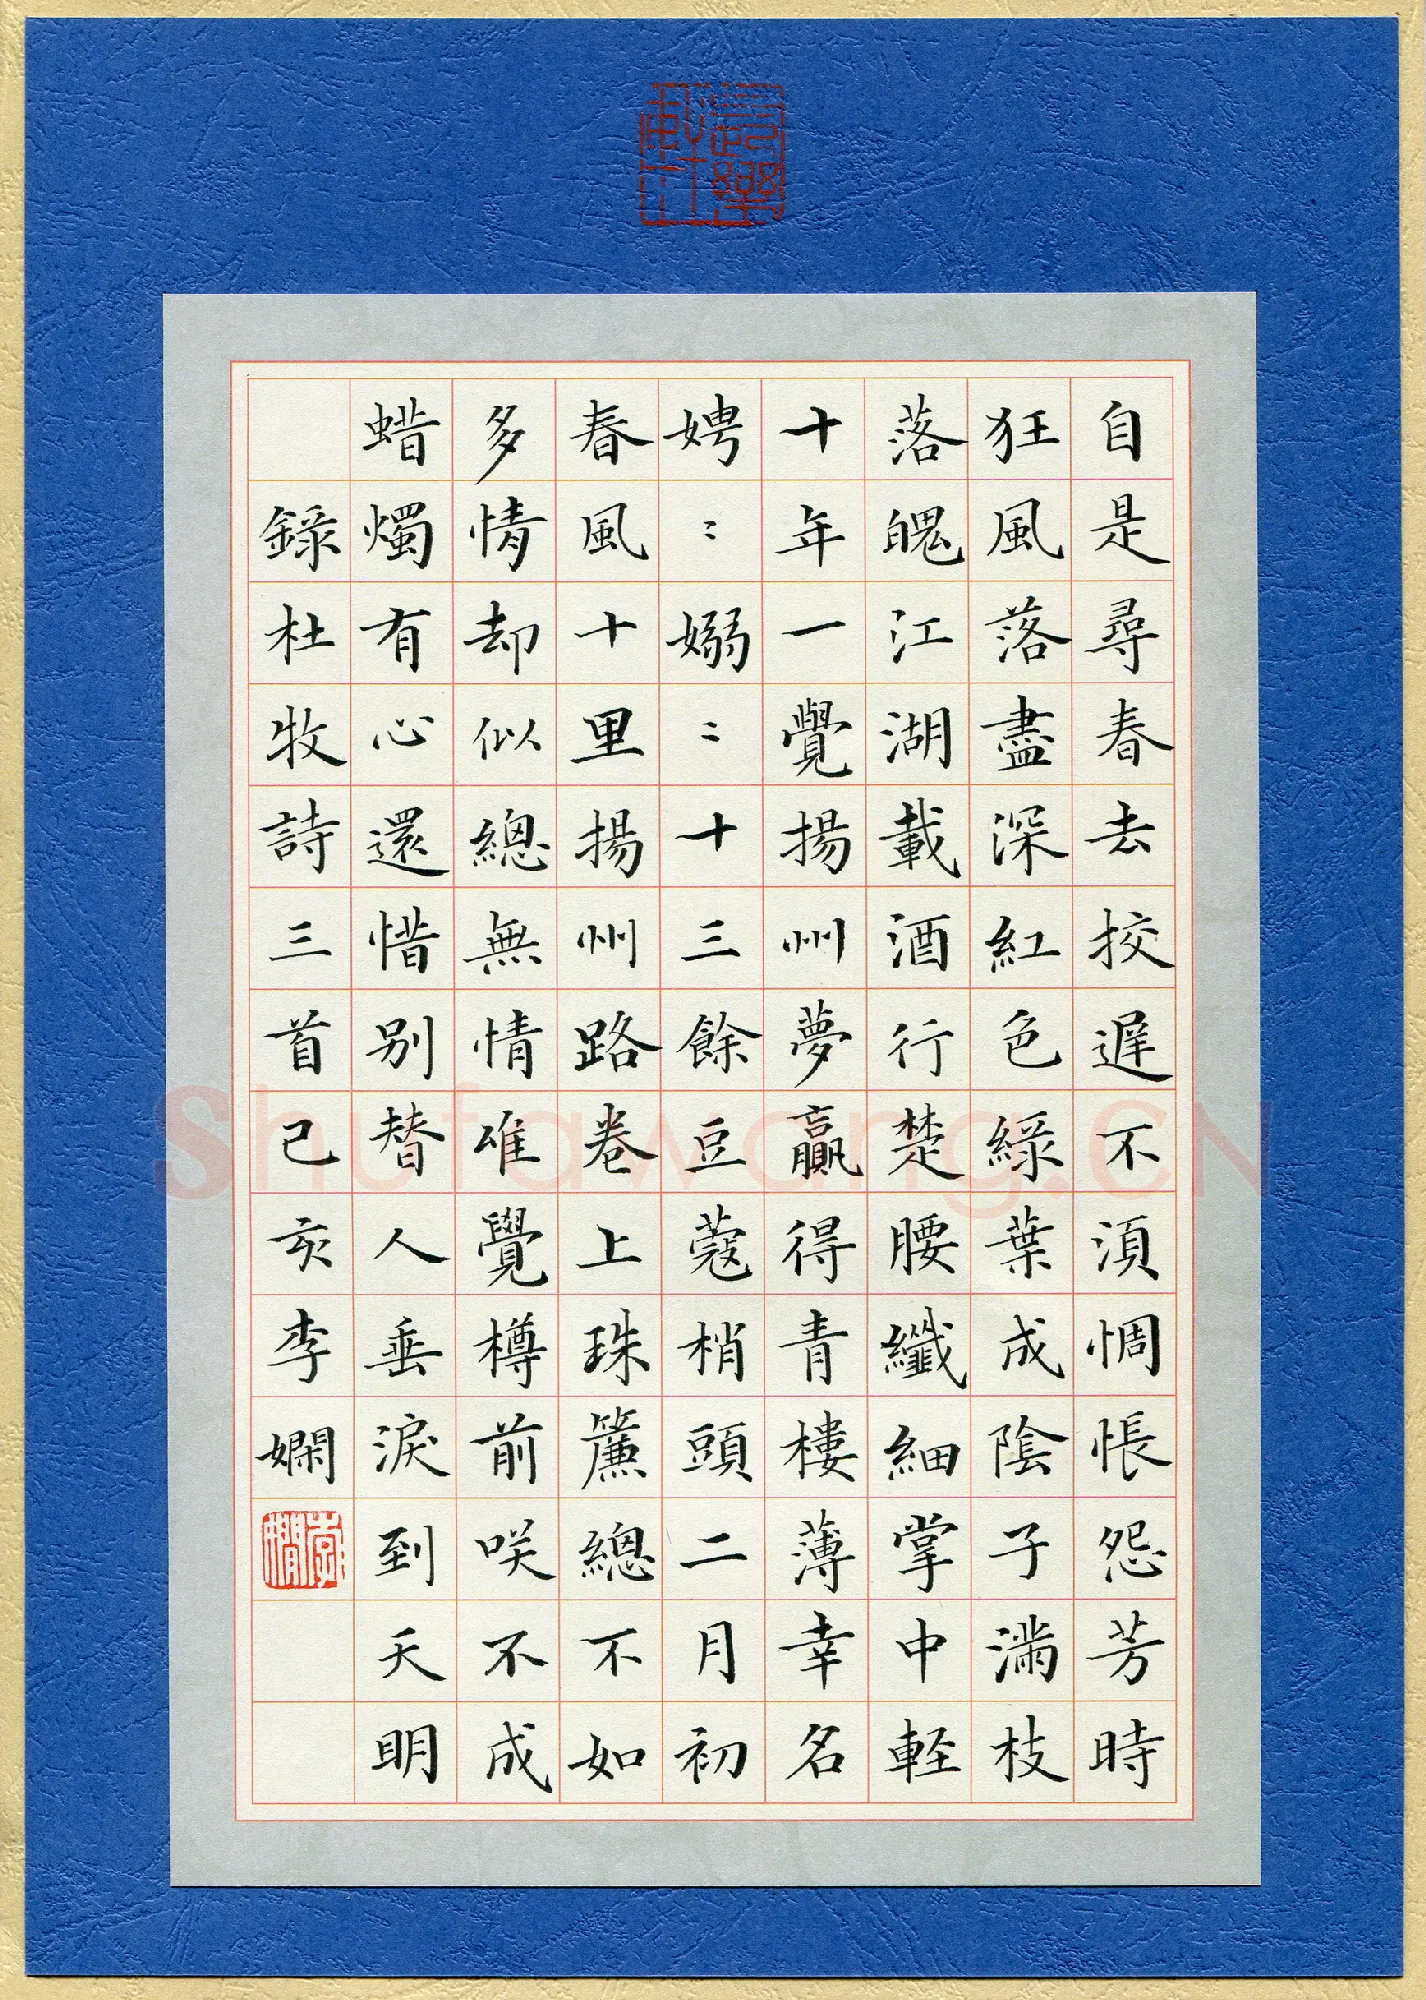 自是尋春去挍遲不須惆悵怨芳時
狂風落盡深紅色綠葉成陰子滿枝
落魄江湖載酒行楚腰纖細掌中輕
十年一覺揚州夢贏得青樓薄幸名
娉〻嫋〻十三餘豆蔻梢頭二月初
春風十里揚州路卷上珠簾總不如
多情却似總無情唯覺樽前咲不成
蜡燭有心還惜別替人垂淚到天明
錄杜牧詩三首己亥李嫻
李嫻
Shufawang.CN